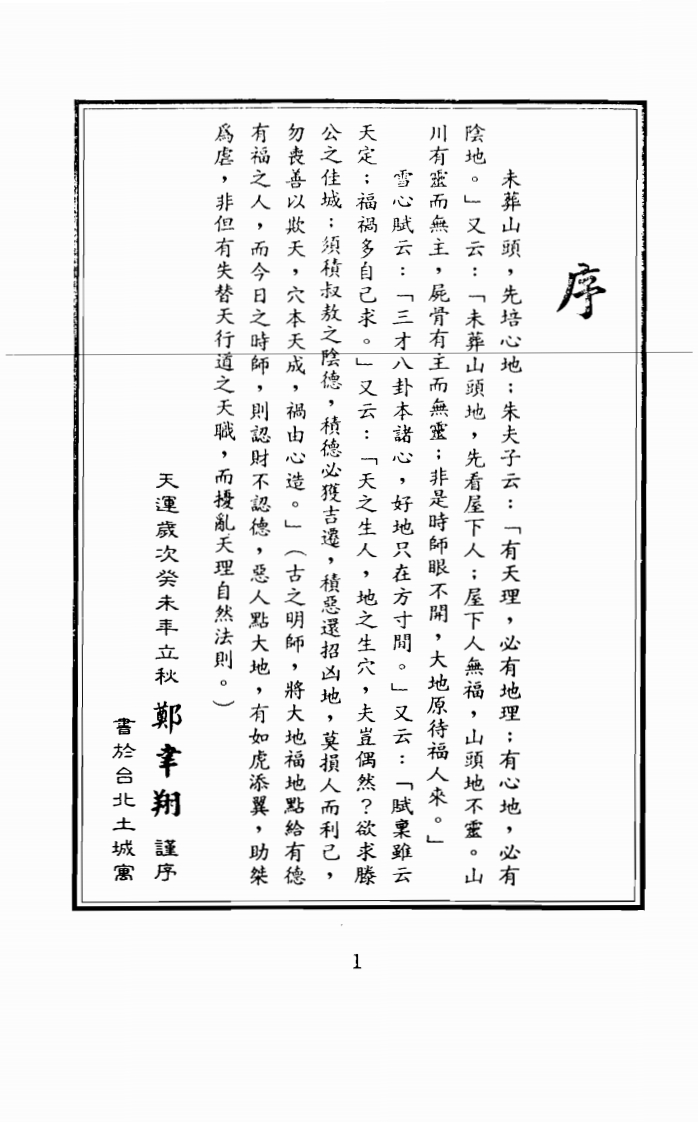 序
未葬山頭，先培心地；朱夫子云：「有天理，必有地理；有心地，必有
陰地。」又云：「未葬山頭地，先看屋下人；屋下人無福，山頭地不靈。山
川有靈而無主，屍骨有主而無靈；非是時師眼不開，大地原待福人來。」
雪心賦云：「三才八卦本諸心，好地只在方寸間。」又云：「賦稟雖云
天定；福禍多自己求。」又云：「天之生人，地之生穴，夫豈偶然？欲求滕
公之佳城；須積叔敖之陰德，積德必獲吉遷，積惡還招凶地，莫損人而利己，
勿喪善以欺天，穴本天成，禍由心造。」（古之明師，將大地福地點給有德
有福之人，而今日之時師，則認財不認德，惡人點大地，有如虎添翼，助桀
為虐，非但有失替天行道之天職，而擾亂天理自然法則。）
天運歲次癸未年立秋 鄭聿翔 謹序
書於台北土城寓
1